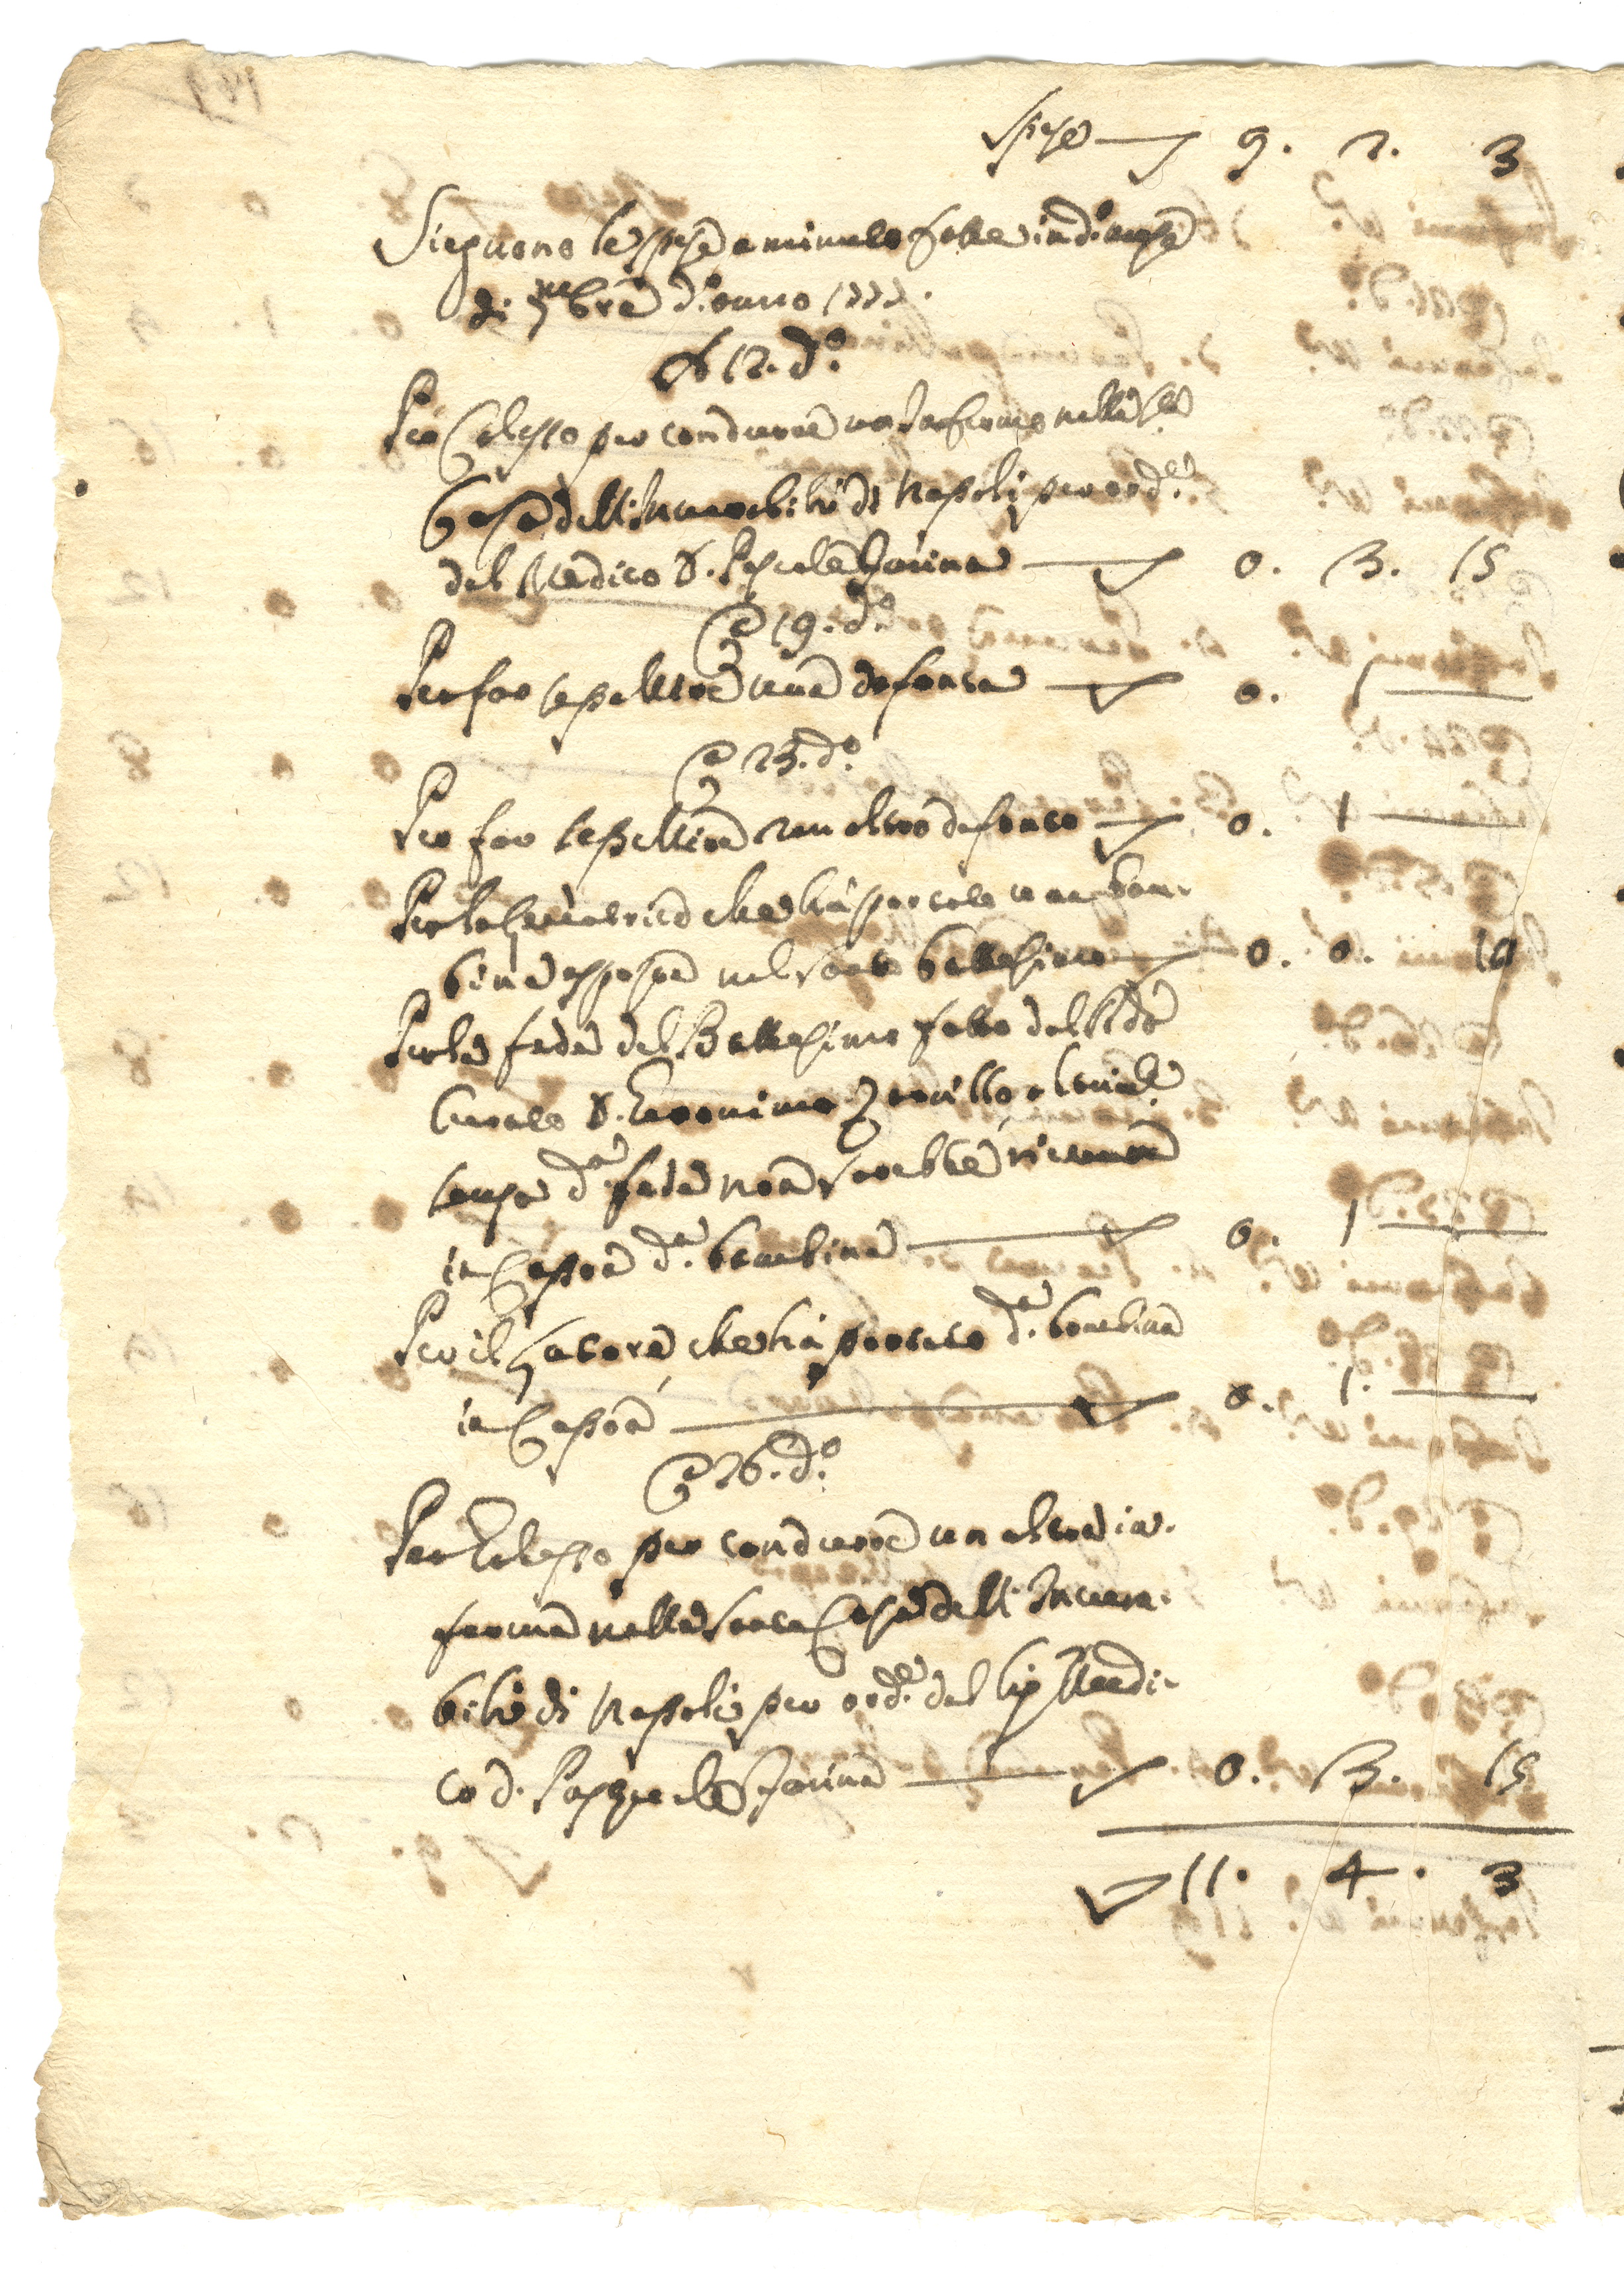 Spese 9. 2. 3
Sieguono le spese a minuto fatte in d.o mese
di 9mbre d.o anno 1777.
A 12. d.o
Per Calesso per condurre un Infermo nella S.ta
Casa dell'Incurabili di Napoli per ord.e
del Medico D. Pascale Farina 0. 3. 15
a 19. d.o
Per far sepellire una defonta 0. 1
a 23. d.o
Per far sepellire un altro defonto 0. 1
Per la che hà portata una bam-
bina esposta nel Santo Battesimo 0. 0. 10
Per la fede del Battesimo fatto dal
Curato D. Geronimo
senza d.a fede non sarebbe ricevuta
in Caserta d.a bambina 0. 1
Per il che hà portato d.a bambina
in Caserta 0. 1.
a 26. d.o
Per Calesso per condurre un altro in-
fermo nella Santa Casa dell'Incura-
bili di Napoli per ord.e del Sig.r Medi-
co D. Pasquale Farina 0. 3. 15
11. 4. 3